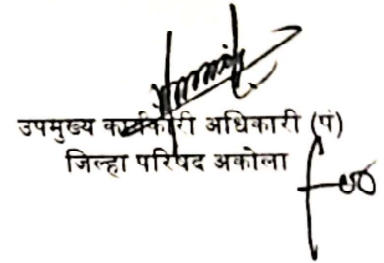 उपमुख्य कार्यकारी अधिकारी (पं)
जिल्हा परिषद अकोला